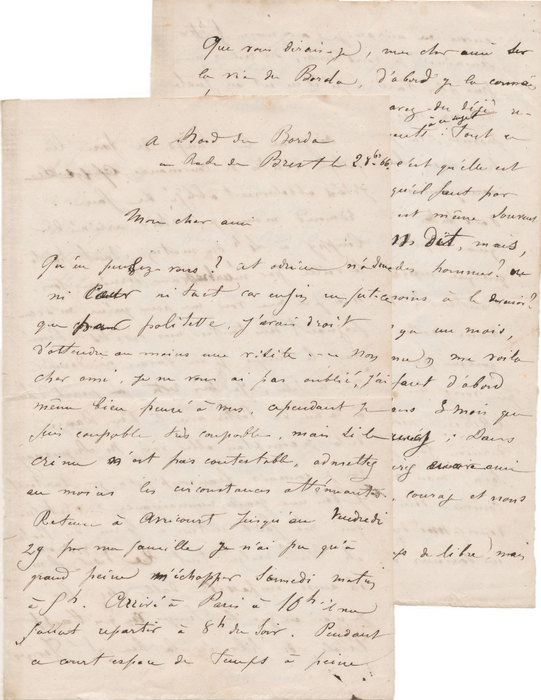 A Bord du Borda
en Rade de Brest le 2 8bre 66
Mon cher ami
Qu'en pensez vous ? cet odieux n'a donc
ni Cœur ni tact car enfin ne fut-ce
que par politesse, j'avais droit
d'attendre au moins une visite --- Non
cher ami, je ne vous ai pas oublié, j'ai
même bien pensé à vous, cependant je
suis coupable, très coupable, mais si le
crime n'est pas contestable, admettez
au moins les circonstances atténuantes
Retenu à Arricourt jusqu'au Vendredi
29 par ma famille je n'ai pu qu'à
grand peine m'échapper Samedi matin
à 5h. Arrivé à Paris à 10h il me
fallait repartir à 8h du soir. Pendant
ce court espace de temps à peine
Que vous dirais-je, mon cher ami sur
la vie du Borda, d'abord je la connais
avez du déjà re-
à ce sujet
: Tout ce
c'est qu'elle est
qu'il faut par
est même souvent
dit, mais,
des hommes ? ne
moins à le devenir ?
qu'un mois,
me voila
faut d'abord
3 mois que
: Dans
ami
, courage et nous
de libre, mais